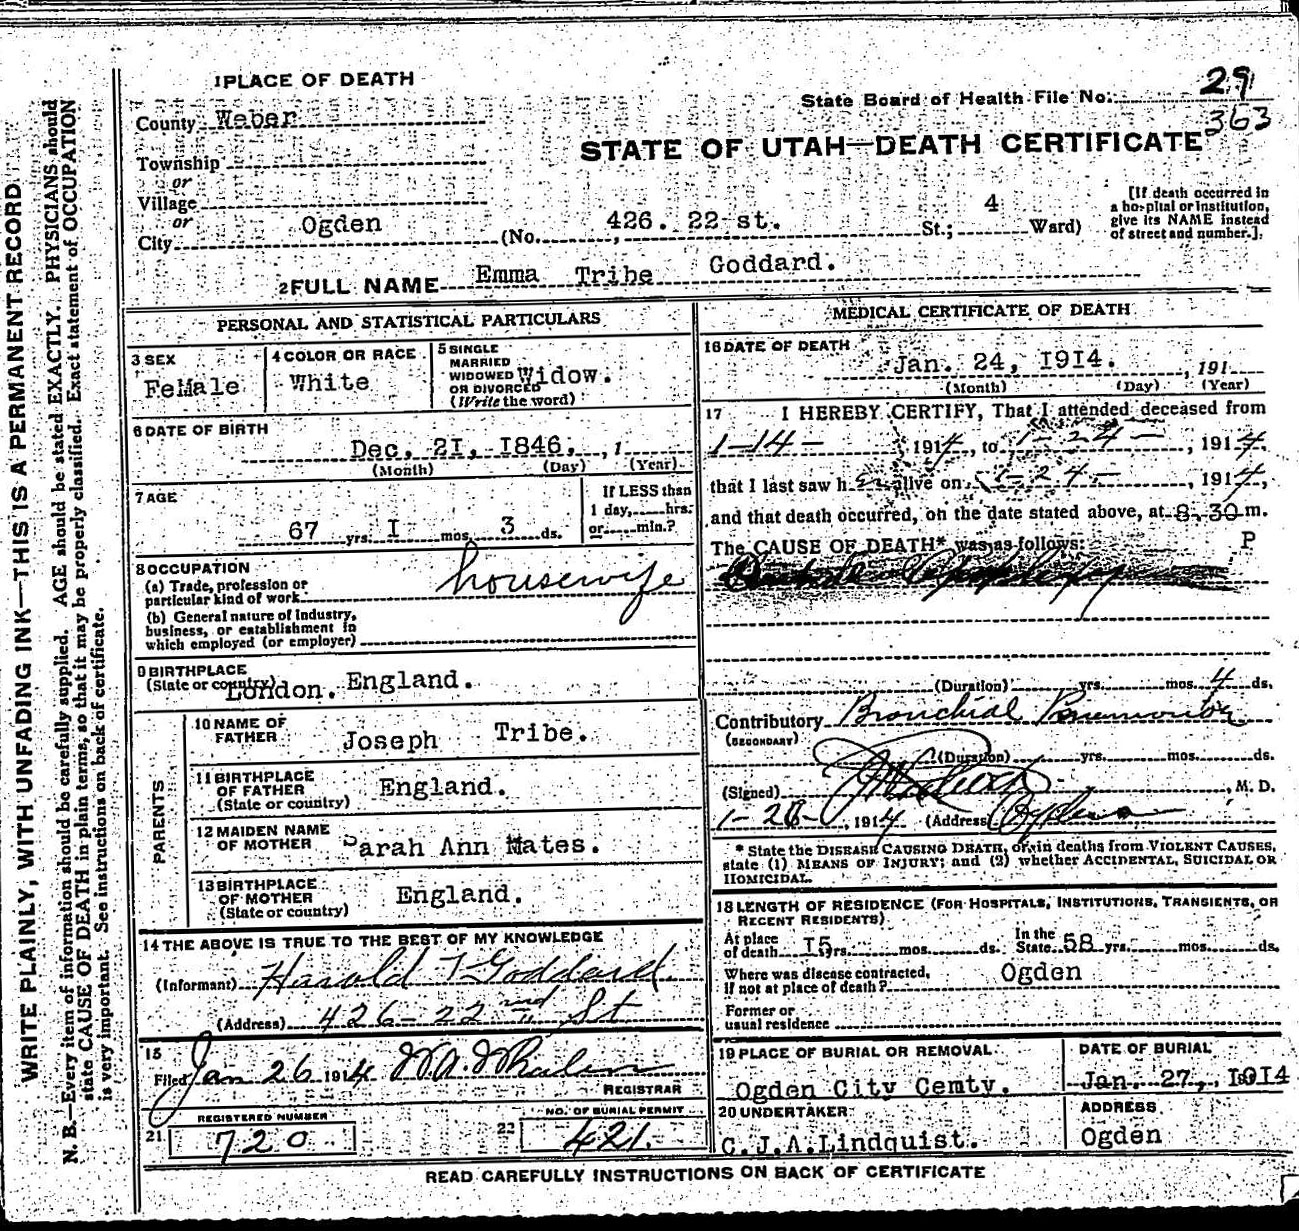 WRITE PLAINLY, WITH UNFADING INK—THIS IS A PERMANENT RECORD
N. B.—Every item of information should be carefully supplied. AGE should be stated EXACTLY. PHYSICIANS should
state CAUSE OF DEATH in plain terms, so that it may be properly classified. Exact statement of OCCUPATION
is very important. See instructions on back of certificate.
1 PLACE OF DEATH
State Board of Health File No. 29
363
County Weber
STATE OF UTAH—DEATH CERTIFICATE
Township
or
Village
or
City Ogden (No. 426. 22 st. St.; 4 Ward)
[If death occurred in
a hospital or institution,
give its NAME instead
of street and number.].
2 FULL NAME Emma Tribe Goddard.
PERSONAL AND STATISTICAL PARTICULARS
3 SEX
FeMale
4 COLOR OR RACE
White
5 SINGLE
MARRIED
WIDOWED Widow.
OR DIVORCED
(Write the word)
6 DATE OF BIRTH
Dec, 2I, I846, , 1
(Month) (Day) (Year)
7 AGE
67 yrs. I mos. 3 ds.
If LESS than
1 day, hrs.
or min.?
8 OCCUPATION
(a) Trade, profession or
particular kind of work housewife
(b) General nature of industry,
business, or establishment in
which employed (or employer)
9 BIRTHPLACE
(State or country) London. England.
PARENTS
10 NAME OF
FATHER Joseph Tribe.
11 BIRTHPLACE
OF FATHER England.
(State or country)
12 MAIDEN NAME
OF MOTHER Sarah Ann Mates.
13 BIRTHPLACE
OF MOTHER England.
(State or country)
14 THE ABOVE IS TRUE TO THE BEST OF MY KNOWLEDGE
(Informant) Harold T Goddard
(Address) 426-22nd St
15
Filed Jan 26 1914 W.A. Whalen
REGISTRAR
REGISTERED NUMBER
21 720
NO. OF BURIAL PERMIT
22 421.
MEDICAL CERTIFICATE OF DEATH
16 DATE OF DEATH
Jan. 24, I9I4. , 191
(Month) (Day) (Year)
17 I HEREBY CERTIFY, That I attended deceased from
1-14- , 1914, to 1-24- , 1914,
that I last saw h er alive on 1-24- , 1914,
and that death occurred, on the date stated above, at 8-30 m.
The CAUSE OF DEATH* was as follows: P
Apoplexy
(Duration) yrs. mos. 4 ds.
Contributory Bronchial Pneumonia
(SECONDARY)
(Duration) yrs. mos. ds.
(Signed) , M. D.
1-26- , 1914 (Address) Ogden
* State the DISEASE CAUSING DEATH, or, in deaths from VIOLENT CAUSES,
state (1) MEANS OF INJURY; and (2) whether ACCIDENTAL, SUICIDAL OR
HOMICIDAL.
18 LENGTH OF RESIDENCE (FOR HOSPITALS, INSTITUTIONS, TRANSIENTS, OR
RECENT RESIDENTS)
At place
of death I5 yrs. mos. ds. In the
State 58 yrs. mos. ds.
Where was disease contracted,
if not at place of death? Ogden
Former or
usual residence
19 PLACE OF BURIAL OR REMOVAL
Ogden City Cemty.
DATE OF BURIAL
Jan. 27, I9I4
20 UNDERTAKER
C.J.A.Lindquist.
ADDRESS
Ogden
READ CAREFULLY INSTRUCTIONS ON BACK OF CERTIFICATE